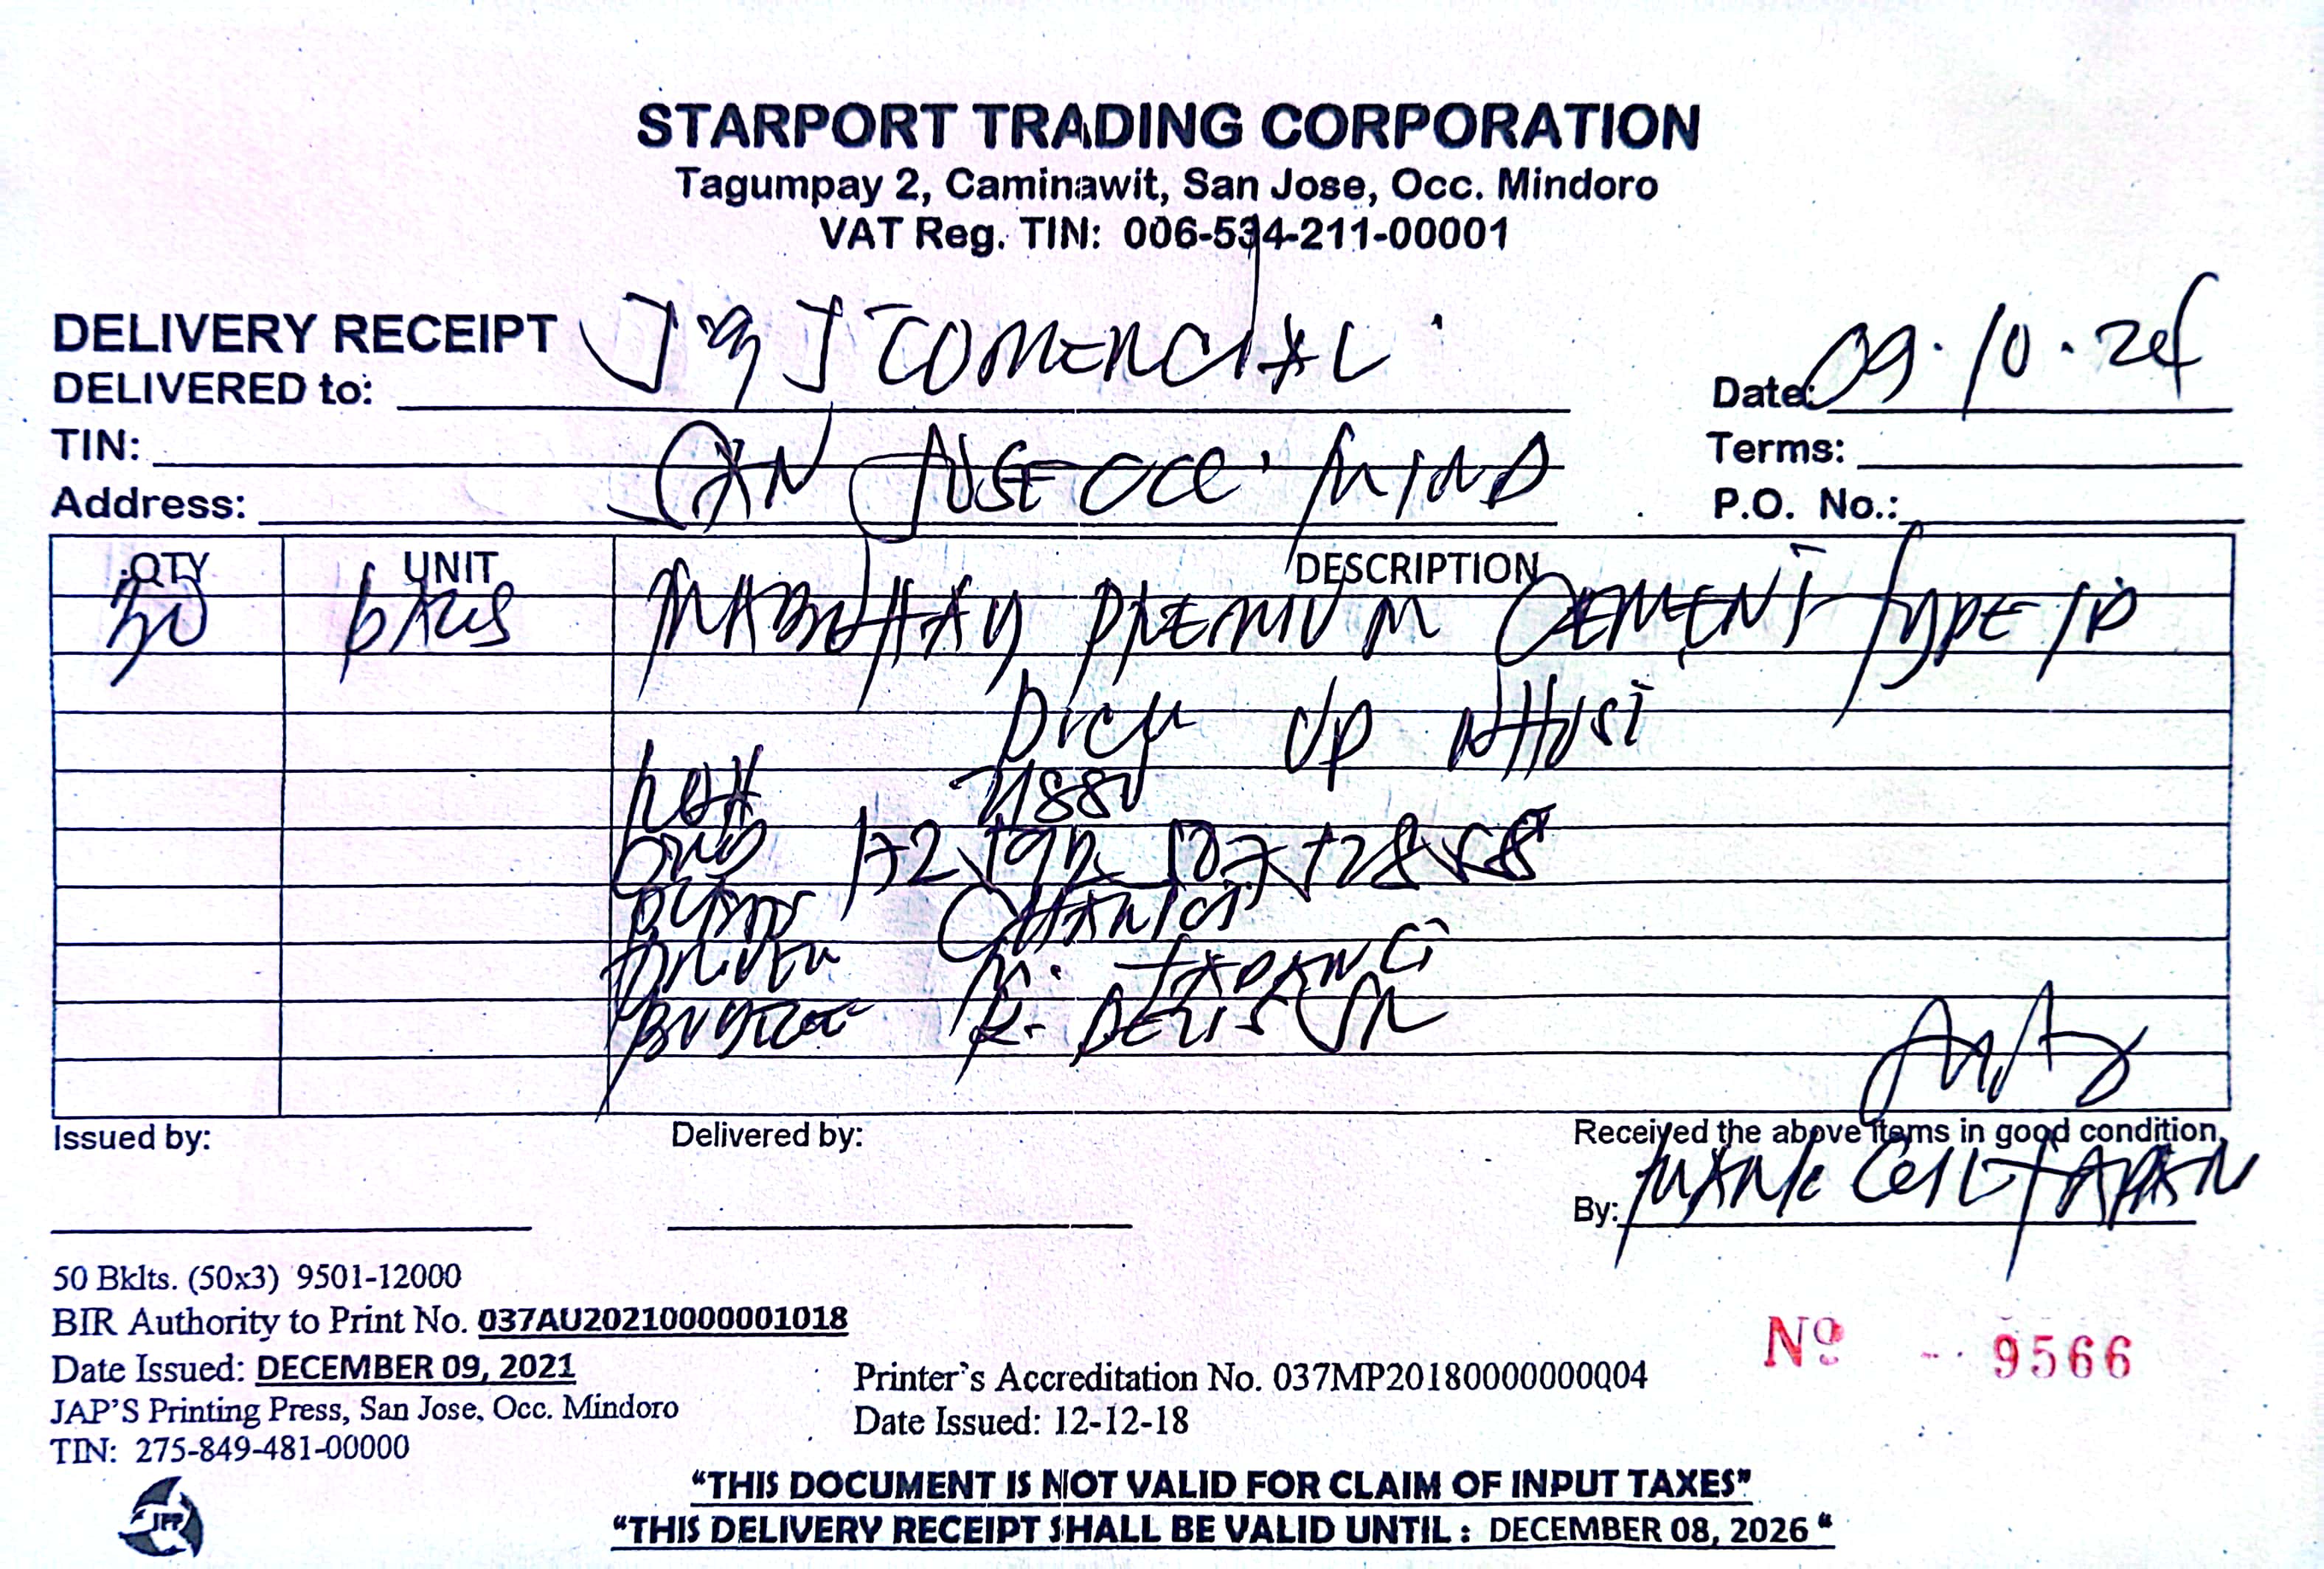 STARPORT TRADING CORPORATION
Tagumpay 2, Caminawit, San Jose, Occ. Mindoro
VAT Reg. TIN: 006-534-211-00001
DELIVERY RECEIPT
DELIVERED to: J & J COMERCIAL
Date: 09.10.24
TIN:
Terms:
Address: SAN JOSE OCC. MIND
P.O. No.:
QTY UNIT DESCRIPTION
30 bags MABUHAY PREMIUM CEMENT TYPE 1P
Pick up
172
R.
Issued by:
Delivered by:
Received the above items in good condition,
By:
50 Bklts. (50x3) 9501-12000
BIR Authority to Print No. 037AU20210000001018
Date Issued: DECEMBER 09, 2021
JAP'S Printing Press, San Jose, Occ. Mindoro
TIN: 275-849-481-00000
Printer's Accreditation No. 037MP20180000000004
Date Issued: 12-12-18
Nº 9566
JPP
"THIS DOCUMENT IS NOT VALID FOR CLAIM OF INPUT TAXES"
"THIS DELIVERY RECEIPT SHALL BE VALID UNTIL : DECEMBER 08, 2026 "